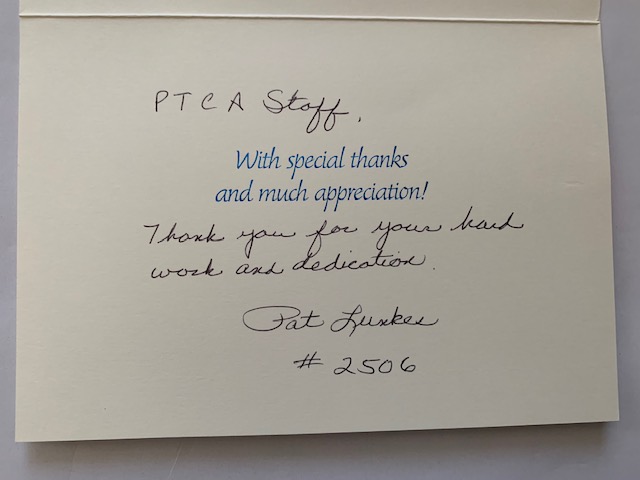 PTCA Staff,
With special thanks
and much appreciation!
Thank you for your hard
work and dedication.
Pat Lunkes
# 2506